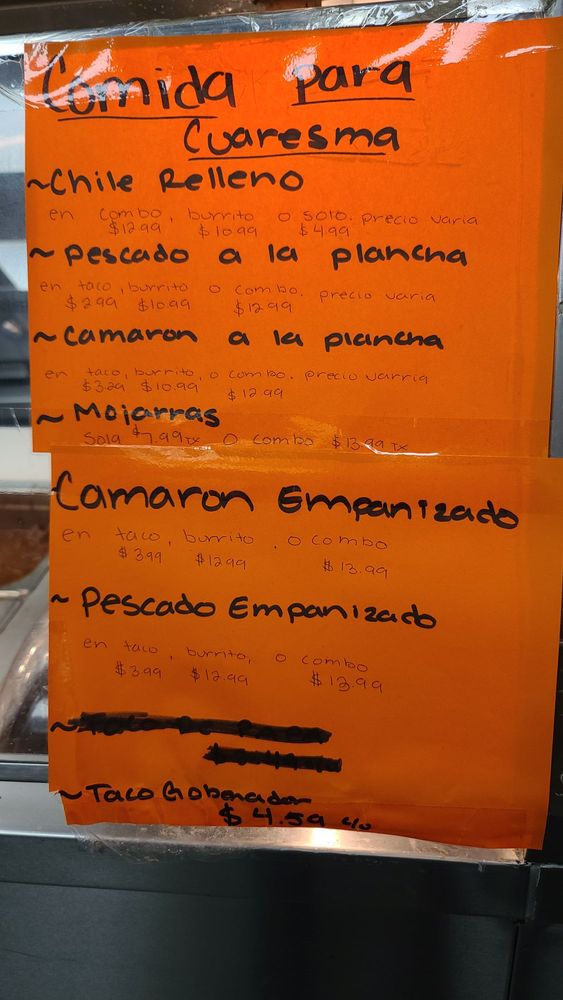 Comida para
Cuaresma
~Chile Relleno
en combo, burrito o solo. precio varia
$12.99 $10.99 $4.99
~ Pescado a la plancha
en taco, burrito o combo. precio varia
$2.99 $10.99 $12.99
~ Camaron a la plancha
en taco, burrito, o combo. precio varria
$3.29 $10.99 $12.99
~ Mojarras
Sola $7.99 TX O combo $13.99 TX
Camaron Empanizado
en taco, burrito, o combo
$3.99 $12.99 $13.99
~ Pescado Empanizado
en taco, burrito, o combo
$3.99 $12.99 $13.99
~
~ Taco Gobenador
$4.59 c/u